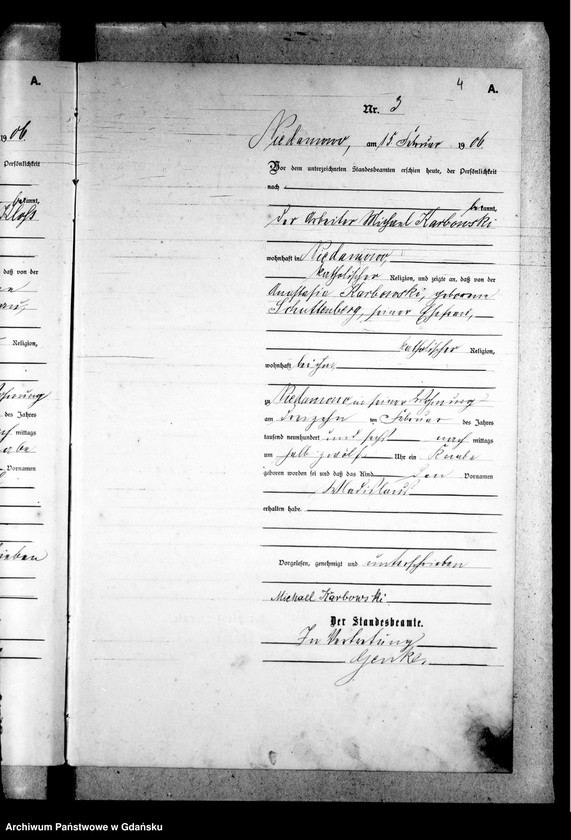 A.
1906.
Persönlichkeit
bekannt,
Kloss
daß von der
Religion,
des Jahres
mittags
Vornamen
4
A.
Nr. 3
Niedamowo, am 15 Februar 1906.
Vor dem unterzeichneten Standesbeamten erschien heute, der Persönlichkeit
nach
bekannt,
der Arbeiter Michael Karbowski
wohnhaft in Niedamowo,
katholischer Religion, und zeigte an, daß von der
Anastasia Karbowski, geborenen
Schuttenberg, seiner Ehefrau,
katholischer Religion,
wohnhaft bei ihm
zu Niedamowo in seiner Wohnung
am dreizehn ten Februar des Jahres
tausend neunhundert und sechs nach mittags
um halb zwölf Uhr ein Knabe
geboren worden sei und daß das Kind den Vornamen
Wladislaus
erhalten habe.
Vorgelesen, genehmigt und unterschrieben
Michael Karbowski.
Der Standesbeamte.
In Vertretung
Genke.
Archiwum Państwowe w Gdańsku